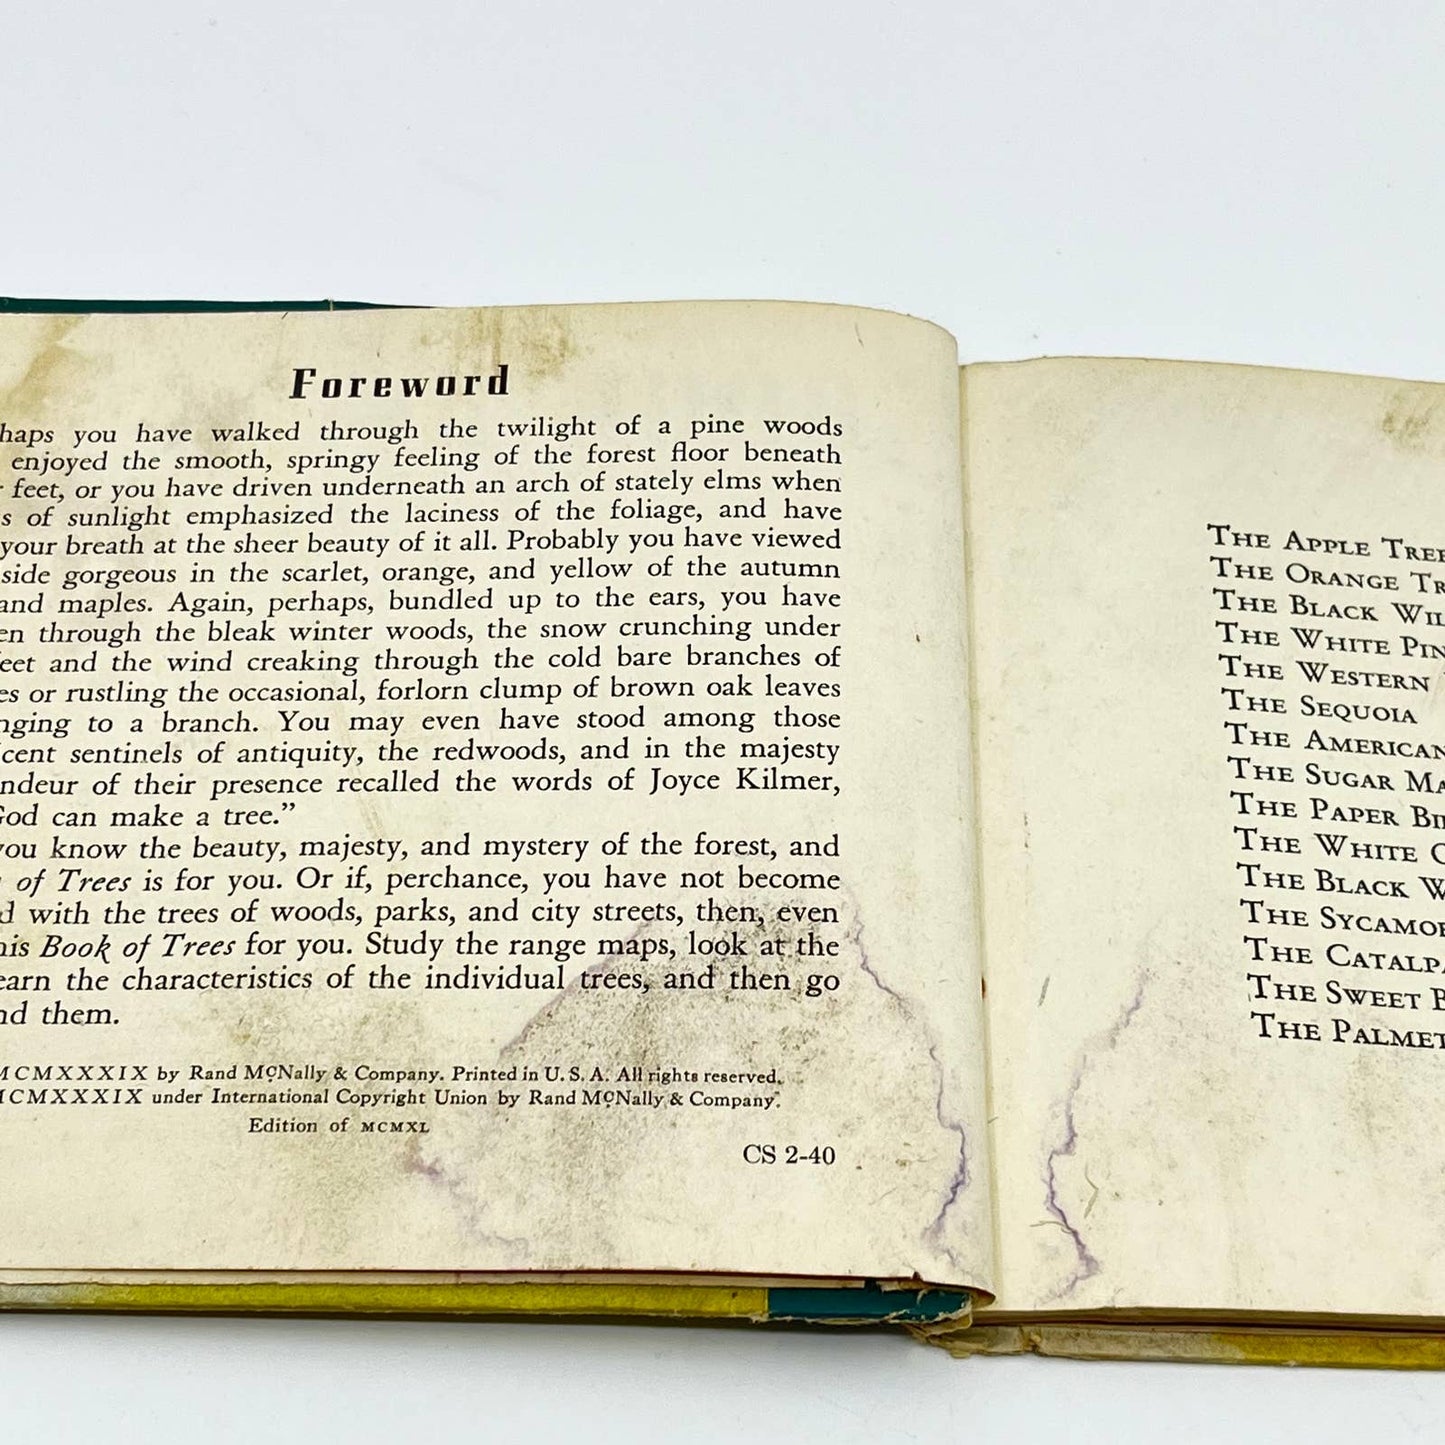 Foreword
haps you have walked through the twilight of a pine woods
enjoyed the smooth, springy feeling of the forest floor beneath
feet, or you have driven underneath an arch of stately elms when
s of sunlight emphasized the laciness of the foliage, and have
your breath at the sheer beauty of it all. Probably you have viewed
side gorgeous in the scarlet, orange, and yellow of the autumn
and maples. Again, perhaps, bundled up to the ears, you have
en through the bleak winter woods, the snow crunching under
feet and the wind creaking through the cold bare branches of
es or rustling the occasional, forlorn clump of brown oak leaves
nging to a branch. You may even have stood among those
icent sentinels of antiquity, the redwoods, and in the majesty
ndeur of their presence recalled the words of Joyce Kilmer,
God can make a tree.”
you know the beauty, majesty, and mystery of the forest, and
of Trees is for you. Or if, perchance, you have not become
d with the trees of woods, parks, and city streets, then, even
his Book of Trees for you. Study the range maps, look at the
earn the characteristics of the individual trees, and then go
nd them.
MCMXXXIX by Rand McNally & Company. Printed in U. S. A. All rights reserved.
MCMXXXIX under International Copyright Union by Rand McNally & Company.
Edition of MCMXL
CS 2-40
THE APPLE TREE
THE ORANGE TR
THE BLACK WIL
THE WHITE PIN
THE WESTERN
THE SEQUOIA
THE AMERICAN
THE SUGAR MA
THE PAPER BI
THE WHITE
THE BLACK W
THE SYCAMOR
THE CATALPA
THE SWEET B
THE PALMET